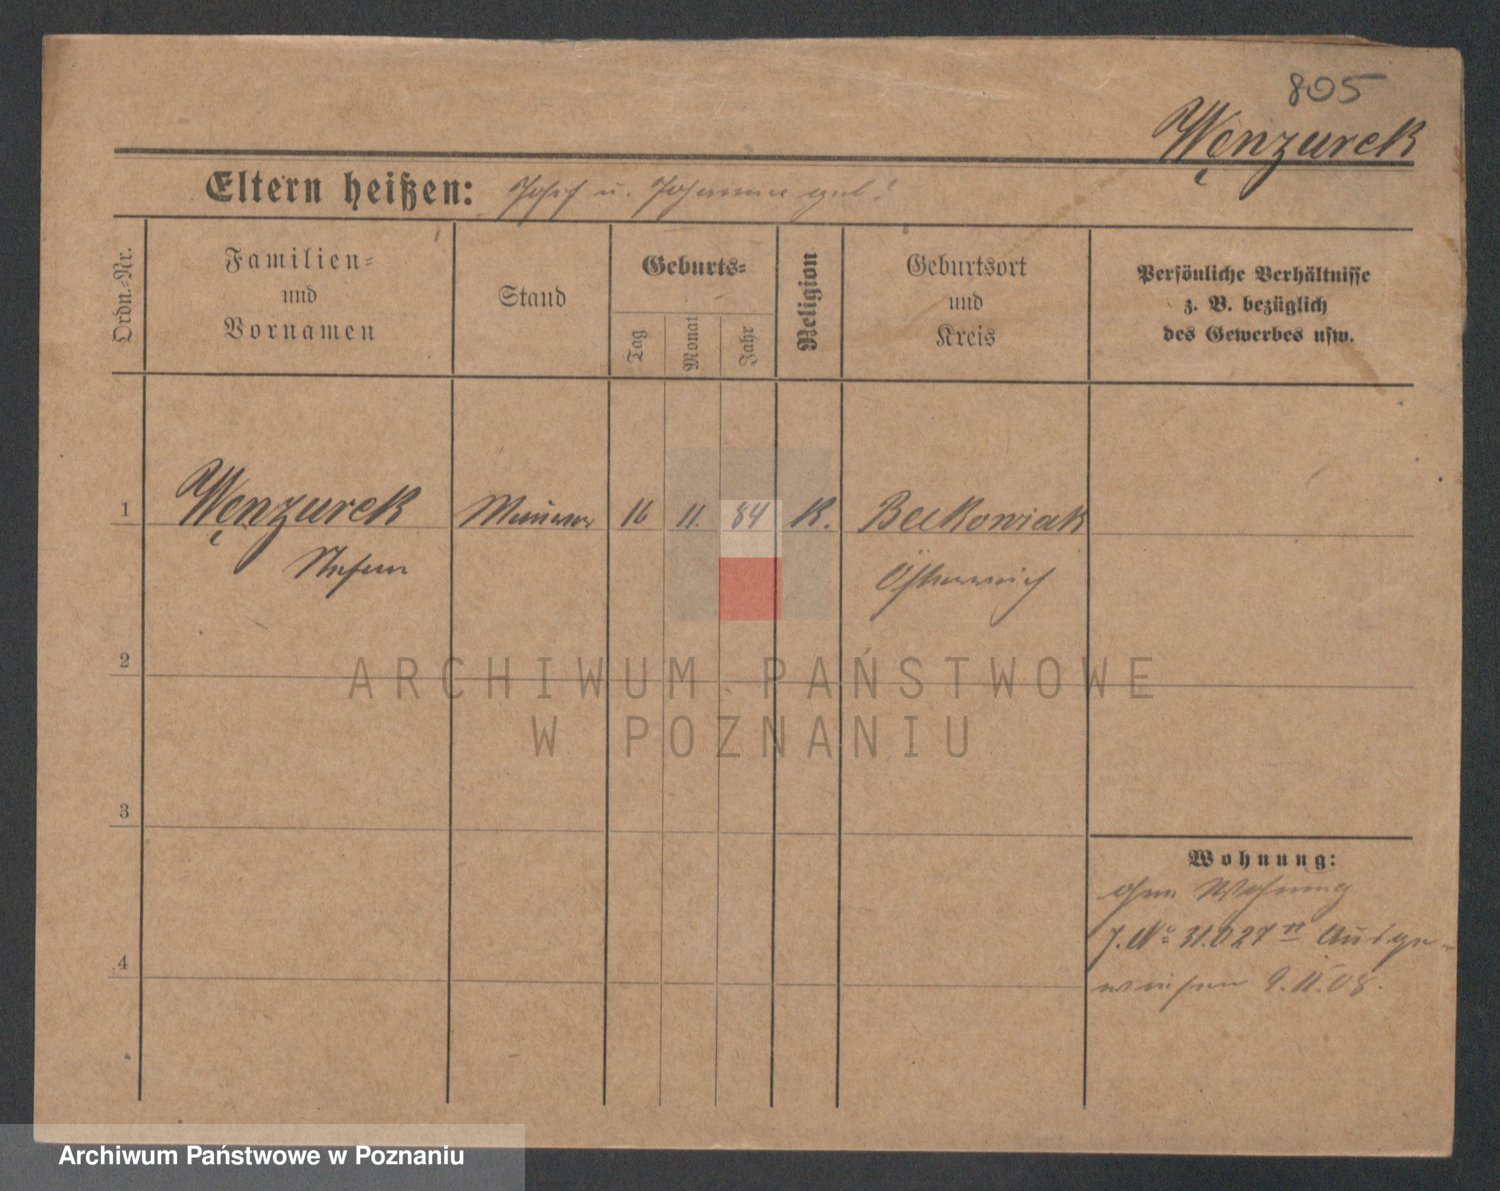 805
Wenzurek
Eltern heißen: Josef u. Johanna geb.?
Ordn.=Nr.
Familien=
und
Vornamen
Stand
Geburts=
Tag
Monat
Jahr
Religion
Geburtsort
und
Kreis
Persönliche Verhältnisse
z. B. bezüglich
des Gewerbes usw.
1 Wenzurek 16 11. 84 K.
Stefan Österreich
2
ARCHIWUM PAŃSTWOWE
W POZNANIU
3
Wohnung:
ohne Wohnung
J. No 31.027 Ausge-
4
wiesen 9.11.08.
Archiwum Państwowe w Poznaniu